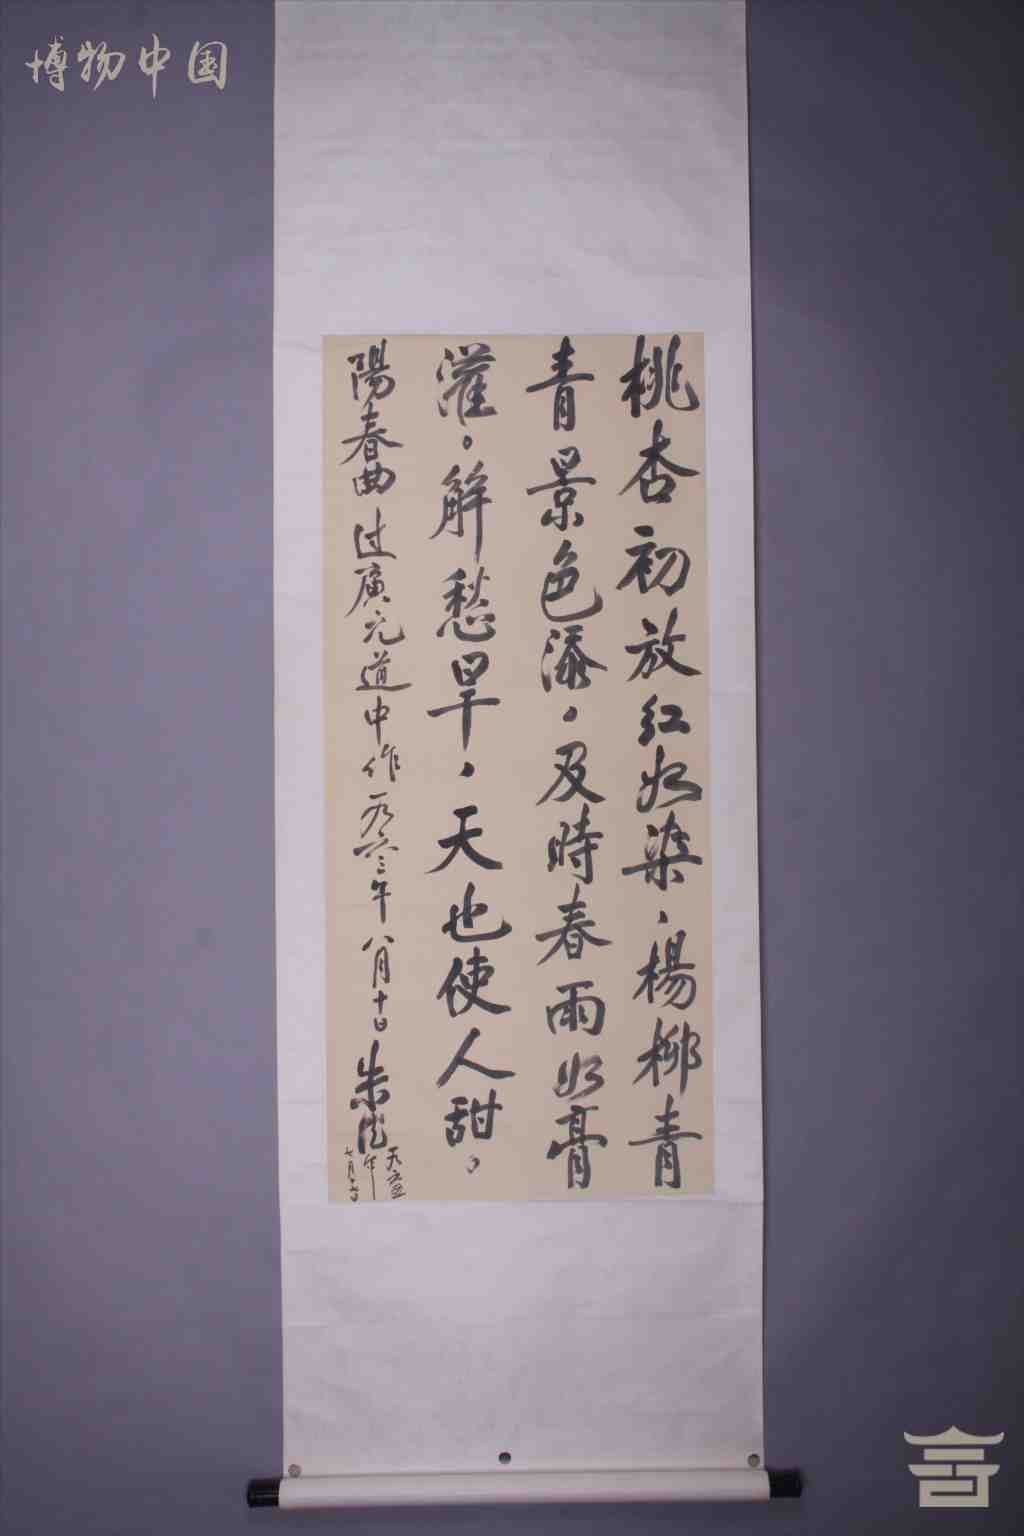 博物中国
桃杏初放红如染，楊柳青
青景色添，及時春雨如膏
灌。解愁旱，天也使人甜。
陽春曲 过廣元道中作 一九六三年 八月十日 朱德